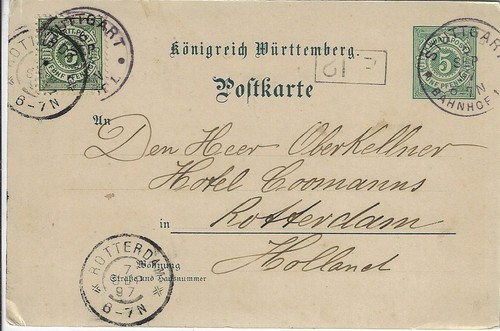 Königreich Württemberg.
Postkarte
An
Den Heer Oberkellner
Hotel Coomanns
in
Rotterdam
Holland
Wohnung
Straße und Hausnummer
STUTTGART
SEP
BAHNHOF 1
5
STUTTGART
5
ROTT
6-7N
F
12
ROTTERDAM
7
97
6-7N